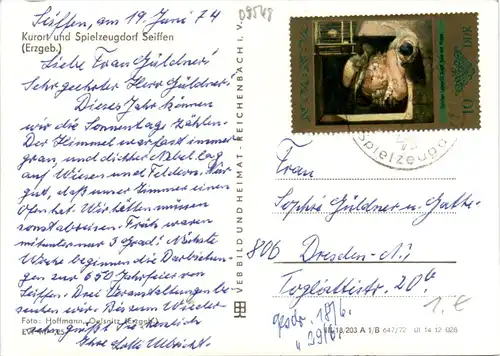 Seiffen, am 19. Juni 74
09548
Kurort und Spielzeugdorf Seiffen
(Erzgeb.)
Liebe Frau Güldner!
Sehr geehrter Herr Güldner!
Dieses Jahr können
wir die Sonnentage zählen.
Der Himmel war fast immer
grau, und dichter Nebel lag
auf Wiesen und Feldern. Nur
gut, daß unser Zimmer einen
Ofen hat. Wir hätten müssen
sonst abreisen. Früh waren
mitunter nur 3 Grad! Nächste
Woche beginnen die Darbietun-
gen zur 650 Jahrfeier von
Seiffen. Drei Veranstaltungen be-
suchen wir. Bis zum Wieder-
sehn grüßt Sie herzlich
Ihre Lotte Ulbricht.
Foto: Hoffmann, Oelsnitz (Erzgeb.)
VEB BILD UND HEIMAT · REICHENBACH I. V.
DDR
10
Spielzeugd
Frau
Sophie Güldner u. Gatte
806 Dresden-N.
Togliattistr. 20b
geschr. 18/6.
" 29/6.
1.€
18 203 A 1/B 647/72 01 14 12 028